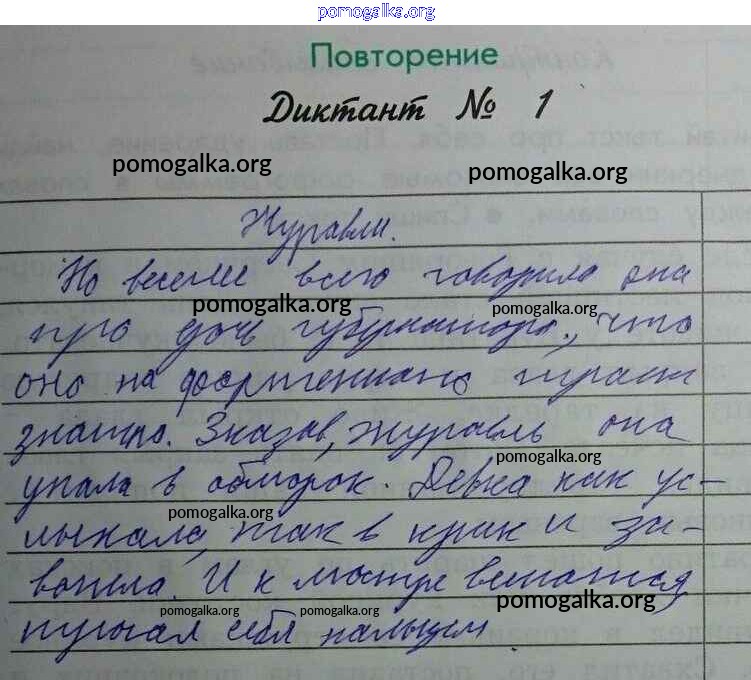 pomogalka.org
Повторение
Диктант № 1
pomogalka.org pomogalka.org
Журавли.
Но веселее всего говорила она
pomogalka.org pomogalka.org
про дочь губернатора, что
она на фортепиано играет
знатно. Сказав, журавль она
pomogalka.org
упала в обморок. Девка как ус-
pomogalka.org
лыхала, так в крик и за-
вопила. И к
pomogalka.org pomogalka.org pomogalka.org
пугал себя пальцем